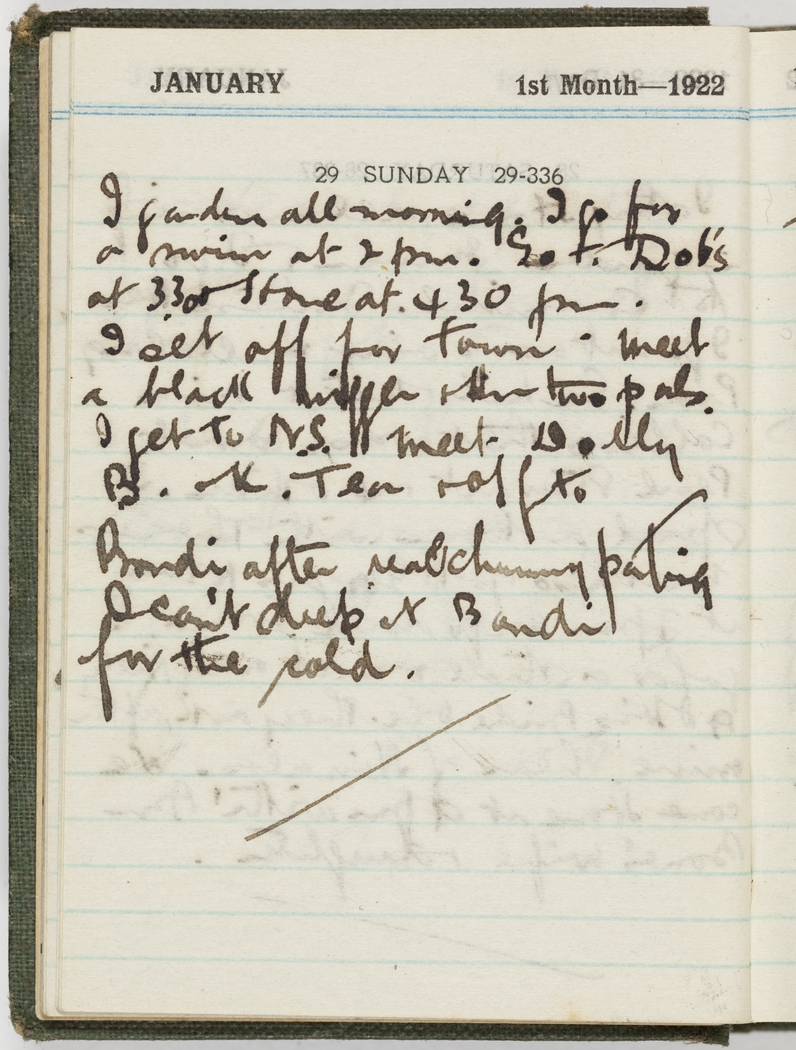 JANUARY 1st Month—1922
29 SUNDAY 29-336
I garden all morning. I go for
a swim at 2 pm. Go t. Dob's
at 330 & Stone at 430 pm.
I set off for town. meet
a black nigger & two pals.
I get to N.S. meet Dolly
B. & K. Tea & off to
Bondi after real chummy
I can't sleep at Bondi
for the cold.